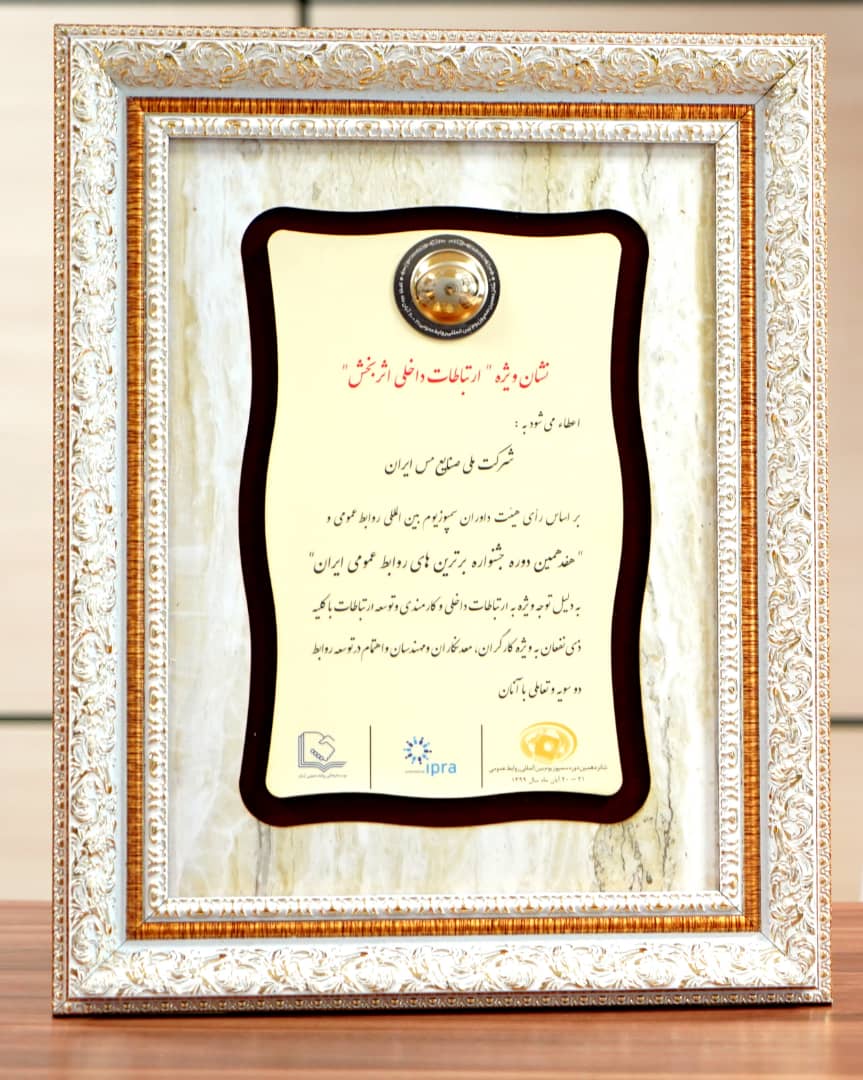 نشان ویژه " ارتباطات داخلی اثربخش"
اعطاء می شود به :
شرکت ملی صنایع مس ایران
بر اساس رأی هیئت داوران سمپوزیوم بین المللی روابط عمومی و
"هفدهمین دوره جشنواره برترین های روابط عمومی ایران"
به دلیل توجه ویژه به ارتباطات داخلی و کارمندی و توسعه ارتباطات با کلیه
ذی نفعان به ویژه کارگران، معدنکاران و مهندسان و اهتمام در توسعه روابط
دو سویه و تعاملی با آنان
ipra
شانزدهمین دوره سمپوزیوم بین المللی روابط عمومی
۲۱ - ۲۰ آبان ماه سال ۱۳۹۹